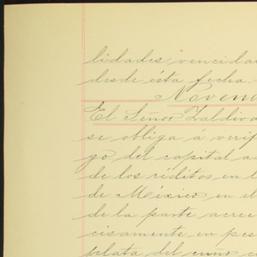 lidades vencida
desde ésta fecha.
Novena
El Señor Zaldiva
se obliga á verif
go del capital a
de los réditos en l
de México en el
de la parte acree
cisamente en pes
plata del cuno c